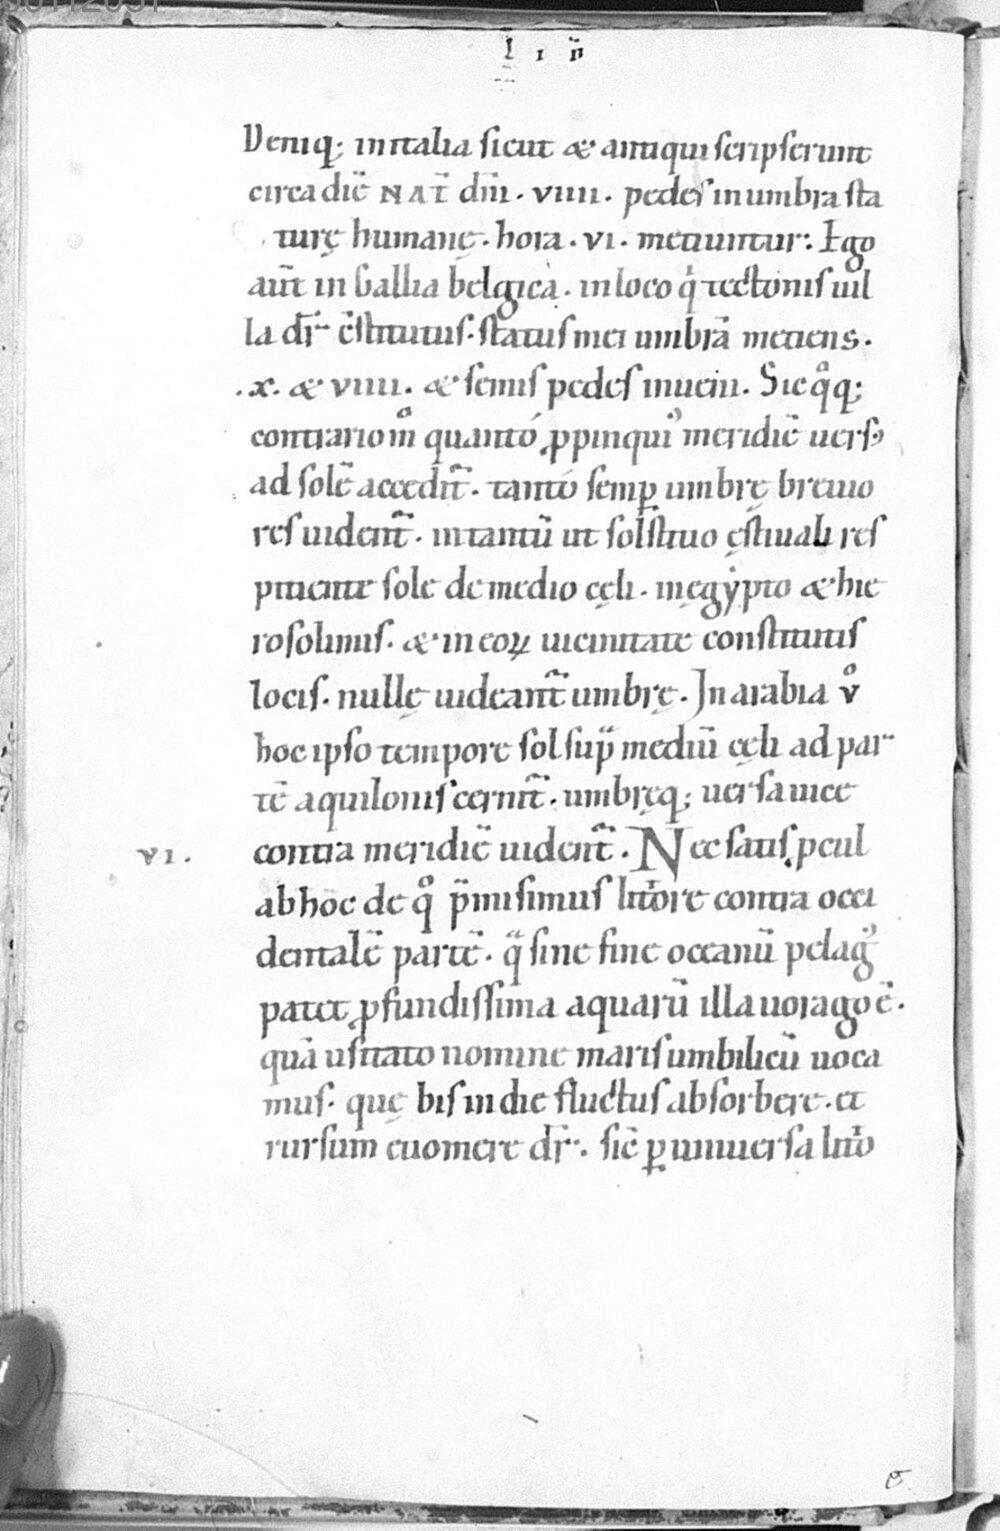 L̄ ı n̄
Deniq; in italia sicut & antiqui scripserunt
circa diē NAT̄ dn̄i. VIIII. pedes in umbra sta
turę humanę. hora. VI. metiuntur: Ego
aut̄ in Gallia belgica. in loco qͥ tectonis uil
la dr̄ c̄stitutus. status mei umbrā metiens.
.X. & VIIII. & semis pedes inueni. Sic qͦq;
contrario m̊ quantó ꝓpinquiꝰ meridiē uersꝰ
ad solē accedit᷑. tantó semꝑ umbrę breuio
res uident᷑. in tantū ut solstitio ęstiuali res
piciente sole de medio cęli. in ęgẏpto & hie
rosolimis. & in eoꝝ uicinitate constitutis
locis. nullę uideant᷑ umbrę. In arabia vͦ
hoc ipso tempore sol sup̄ mediū cęli ad par
tē aquilonis cernit᷑. umbręq; uersa uice
contra meridiē uident᷑. Nec satis ꝓcul
VI.
ab hoc de qͦ p̄misimus litore contra occi
dentalē partē. qᷓ sine fine oceanū pelagꝰ
patet ꝓfundissima aquarū illa uorago ē.
quā usitato nomine maris umbilicū uoca
mus. quę bis in die fluctus absorbere. et
rursum euomere dr̄. sic̄ ꝑ uniuersa lito